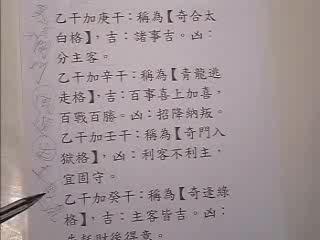 乙干加庚干：稱為【奇合太
白格】，吉：諸事吉。凶：
分主客。
乙干加辛干：稱為【青龍逃
走格】，吉：百事喜上加喜，
百戰百勝。凶：招降納叛。
乙干加壬干：稱為【奇門入
獄格】，凶：利客不利主，
宜固守。
乙干加癸干：稱為【奇逢綠
格】，吉：主客皆吉。凶：
先耗財後得意。